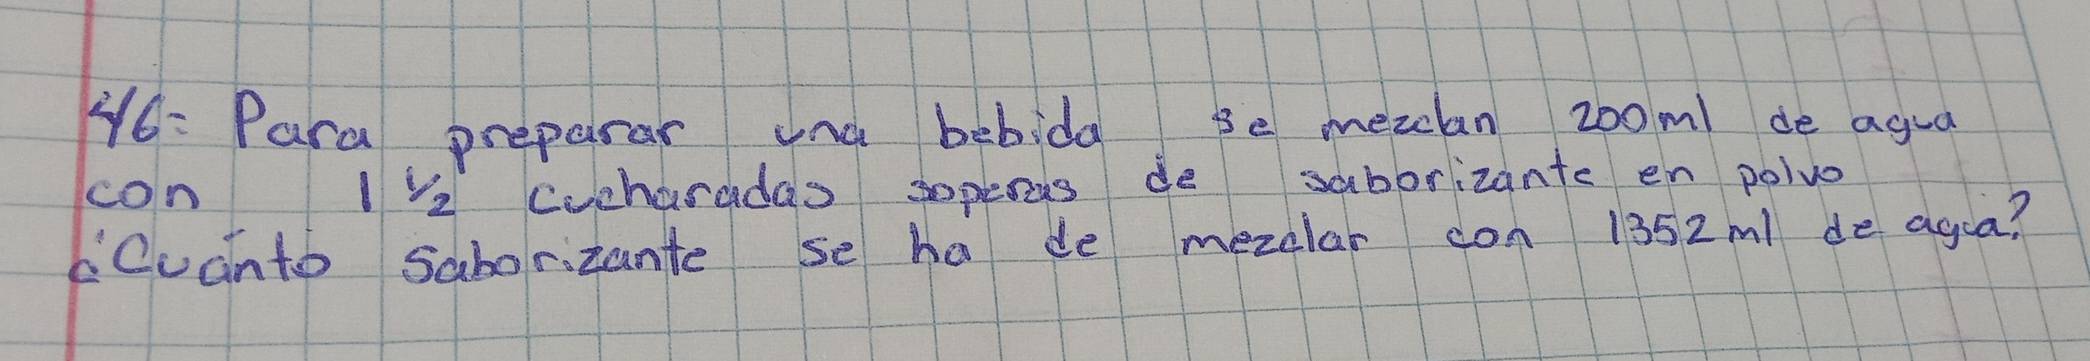 46= Para preparar una bebida se mezclan 200ml de agua
con 1 1/2 cucharadas soperas de saborizante en polvo
¿Cuánto saborizante se ha de mezclar con 1352 ml de agua?